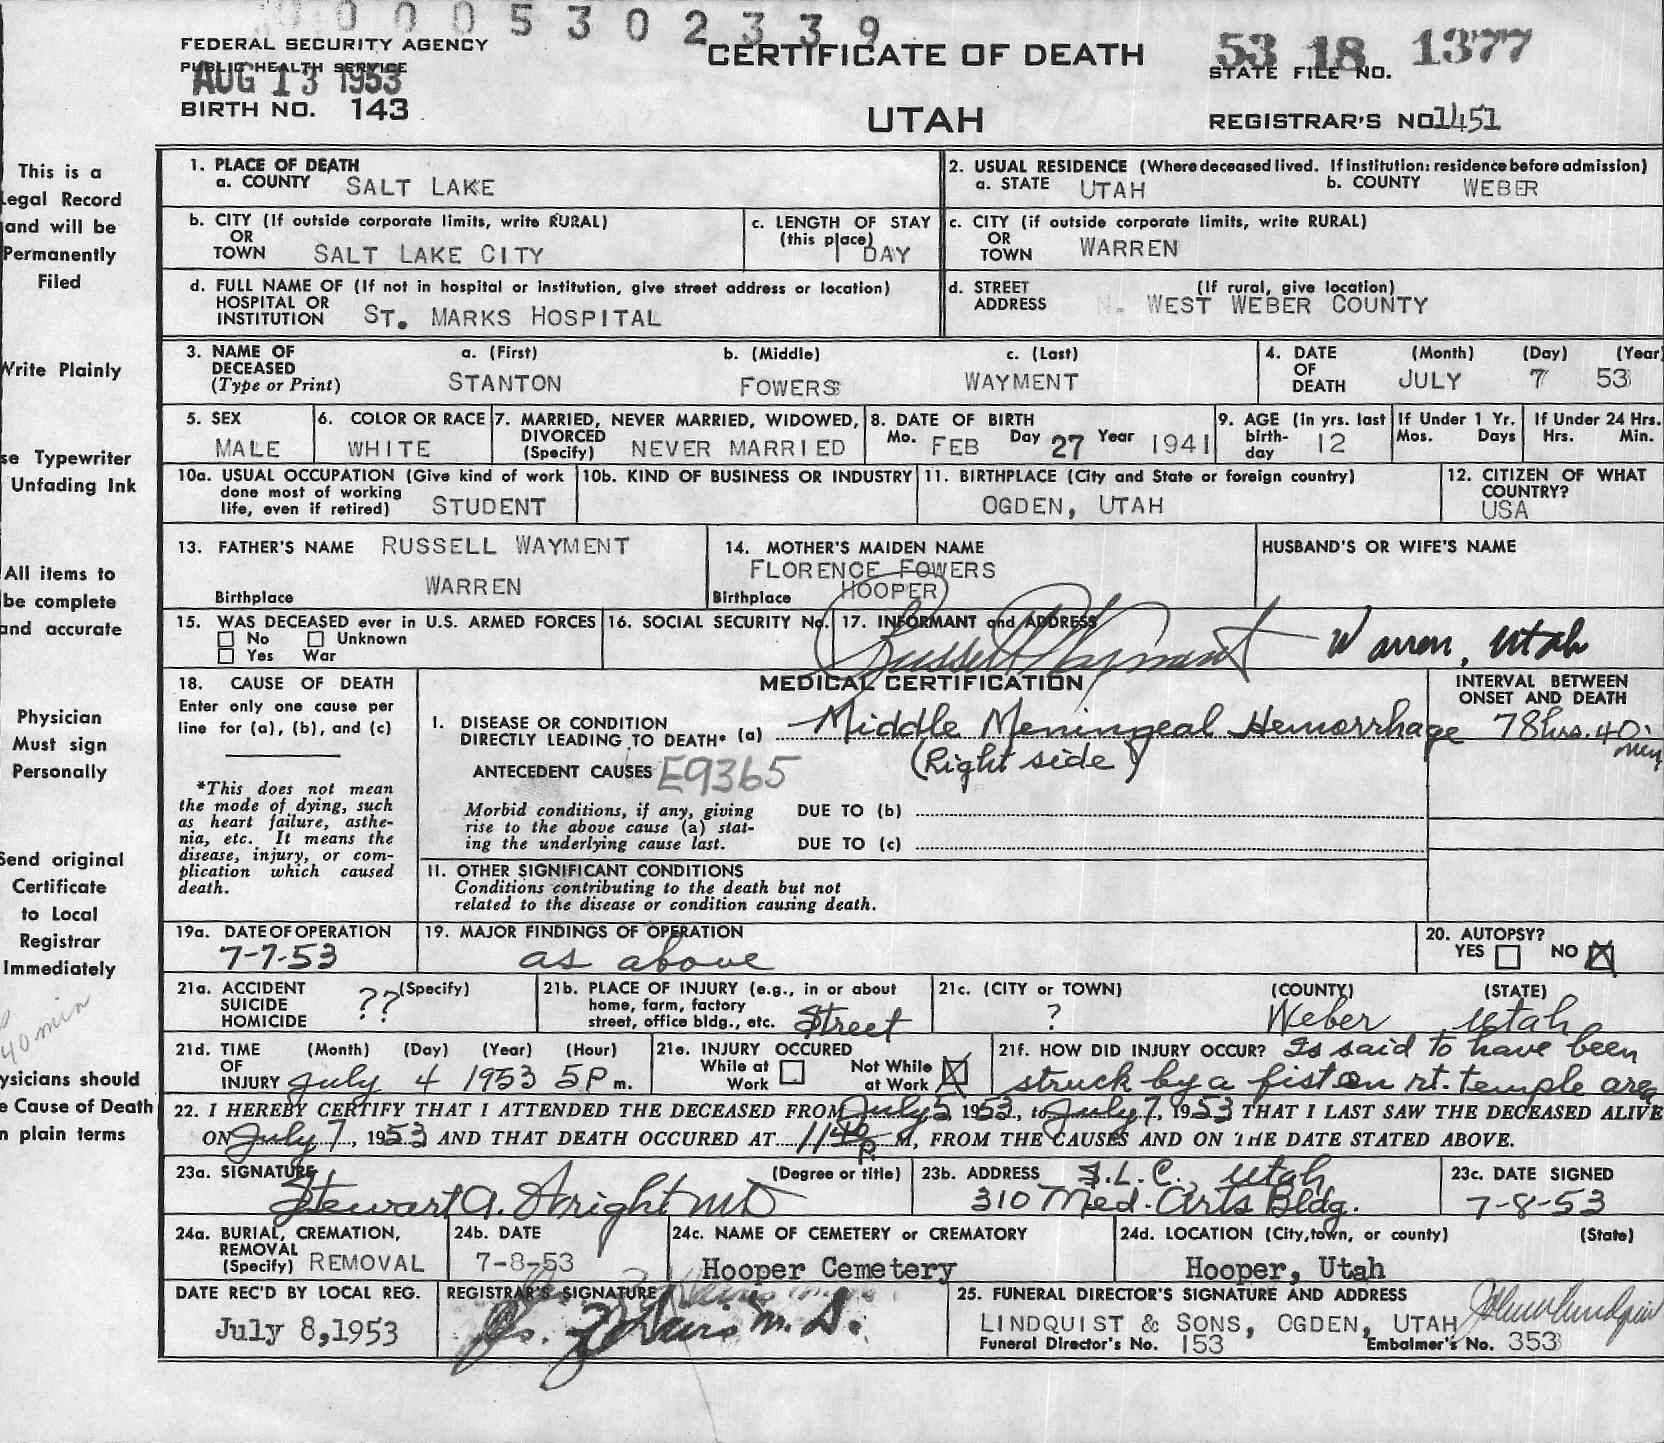 0 0 0 5 3 0 2 3 3 9
FEDERAL SECURITY AGENCY
PUBLIC HEALTH SERVICE
AUG 13 1953
BIRTH NO. 143
CERTIFICATE OF DEATH
UTAH
53 18 1377
STATE FILE NO.
REGISTRAR'S NO. 1451
This is a
Legal Record
and will be
Permanently
Filed
Write Plainly
se Typewriter
Unfading Ink
All items to
be complete
and accurate
Physician
Must sign
Personally
Send original
Certificate
to Local
Registrar
Immediately
40 min
ysicians should
e Cause of Death
n plain terms
1. PLACE OF DEATH
a. COUNTY SALT LAKE
2. USUAL RESIDENCE (Where deceased lived. If institution: residence before admission)
a. STATE UTAH b. COUNTY WEBER
b. CITY (If outside corporate limits, write RURAL)
OR
TOWN SALT LAKE CITY
c. LENGTH OF STAY
(this place)
1 DAY
c. CITY (if outside corporate limits, write RURAL)
OR
TOWN WARREN
d. FULL NAME OF (If not in hospital or institution, give street address or location)
HOSPITAL OR
INSTITUTION ST. MARKS HOSPITAL
d. STREET (If rural, give location)
ADDRESS WEST WEBER COUNTY
3. NAME OF DECEASED
(Type or Print)
a. (First) b. (Middle) c. (Last)
STANTON FOWERS WAYMENT
4. DATE OF DEATH (Month) (Day) (Year)
JULY 7 53
5. SEX
MALE
6. COLOR OR RACE
WHITE
7. MARRIED, NEVER MARRIED, WIDOWED,
DIVORCED
(Specify) NEVER MARRIED
8. DATE OF BIRTH
Mo. FEB Day 27 Year 1941
9. AGE (In yrs. last
birth-
day 12
If Under 1 Yr.
Mos. Days
If Under 24 Hrs.
Hrs. Min.
10a. USUAL OCCUPATION (Give kind of work
done most of working
life, even if retired) STUDENT
10b. KIND OF BUSINESS OR INDUSTRY
11. BIRTHPLACE (City and State or foreign country)
OGDEN, UTAH
12. CITIZEN OF WHAT
COUNTRY?
USA
13. FATHER'S NAME RUSSELL WAYMENT
Birthplace WARREN
14. MOTHER'S MAIDEN NAME
FLORENCE FOWERS
Birthplace HOOPER
HUSBAND'S OR WIFE'S NAME
15. WAS DECEASED ever in U.S. ARMED FORCES
No Unknown
Yes War
16. SOCIAL SECURITY No.
17. INFORMANT and ADDRESS
Russell Wayment Warren, Utah
18. CAUSE OF DEATH
Enter only one cause per
line for (a), (b), and (c)
*This does not mean
the mode of dying, such
as heart failure, asthe-
nia, etc. It means the
disease, injury, or com-
plication which caused
death.
MEDICAL CERTIFICATION
INTERVAL BETWEEN
ONSET AND DEATH
I. DISEASE OR CONDITION
DIRECTLY LEADING TO DEATH* (a) Middle Meningeal Hemorrhage 78 hrs. 40 min
(Right side)
ANTECEDENT CAUSES E9365
Morbid conditions, if any, giving
rise to the above cause (a) stat-
ing the underlying cause last.
DUE TO (b)
DUE TO (c)
II. OTHER SIGNIFICANT CONDITIONS
Conditions contributing to the death but not
related to the disease or condition causing death.
19a. DATE OF OPERATION
7-7-53
19. MAJOR FINDINGS OF OPERATION
as above
20. AUTOPSY?
YES NO
21a. ACCIDENT
SUICIDE
HOMICIDE
(Specify)
??
21b. PLACE OF INJURY (e.g., in or about
home, farm, factory
street, office bldg., etc. Street
21c. (CITY or TOWN) (COUNTY) (STATE)
? Weber Utah
21d. TIME OF INJURY (Month) (Day) (Year) (Hour)
July 4 1953 5P m.
21e. INJURY OCCURED
While at Work Not While at Work
21f. HOW DID INJURY OCCUR? Is said to have been
struck by a fist on rt. temple area
22. I HEREBY CERTIFY THAT I ATTENDED THE DECEASED FROM July 5 1953, to July 7, 1953 THAT I LAST SAW THE DECEASED ALIVE
ON July 7, 1953 AND THAT DEATH OCCURED AT 11:40 P M, FROM THE CAUSES AND ON THE DATE STATED ABOVE.
23a. SIGNATURE (Degree or title)
Stewart A. Wright MD
23b. ADDRESS S.L.C., Utah
310 Med. Arts Bldg.
23c. DATE SIGNED
7-8-53
24a. BURIAL, CREMATION,
REMOVAL
(Specify) REMOVAL
24b. DATE
7-8-53
24c. NAME OF CEMETERY or CREMATORY
Hooper Cemetery
24d. LOCATION (City, town, or county) (State)
Hooper, Utah
DATE REC'D BY LOCAL REG.
July 8, 1953
REGISTRAR'S SIGNATURE
M.D.
25. FUNERAL DIRECTOR'S SIGNATURE AND ADDRESS
LINDQUIST & SONS, OGDEN, UTAH
Funeral Director's No. 153 Embalmer's No. 353